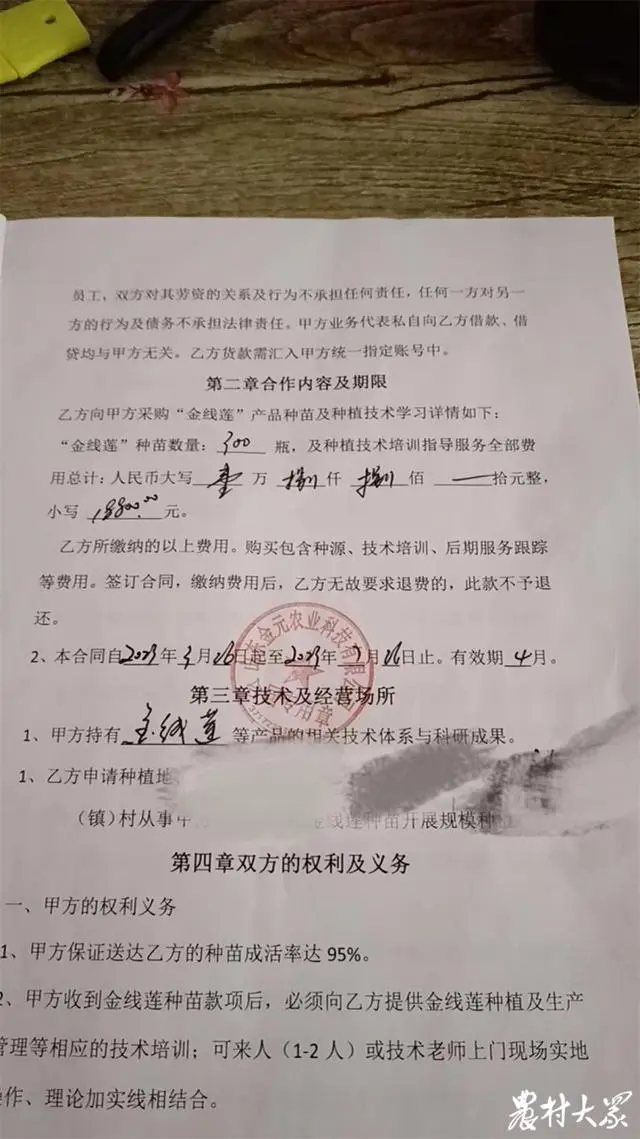 员工，双方对其劳资的关系及行为不承担任何责任，任何一方对另一
方的行为及债务不承担法律责任。甲方业务代表私自向乙方借款、借
贷均与甲方无关。乙方货款需汇入甲方统一指定账号中。
第二章合作内容及期限
乙方向甲方采购“金线莲”产品种苗及种植技术学习详情如下：
“金线莲”种苗数量：300 瓶，及种植技术培训指导服务全部费
用总计：人民币大写 壹 万 捌 仟 捌 佰 — 拾元整，
小写 18800.00 元。
乙方所缴纳的以上费用。购买包含种源、技术培训、后期服务跟踪
等费用。签订合同，缴纳费用后，乙方无故要求退费的，此款不予退
还。
2、本合同自2023年3月26日起至2023年7月26日止。有效期 4月。
金元农业科技有限公
专用章
第三章技术及经营场所
1、甲方持有 金线莲 等产品的相关技术体系与科研成果。
1、乙方申请种植地
（镇）村从事 金线莲种苗开展规模种
第四章双方的权利及义务
一、甲方的权利义务
1、甲方保证送达乙方的种苗成活率达 95%。
2、甲方收到金线莲种苗款项后，必须向乙方提供金线莲种植及生产
管理等相应的技术培训；可来人（1-2 人）或技术老师上门现场实地
操作、理论加实线相结合。
農村大眾